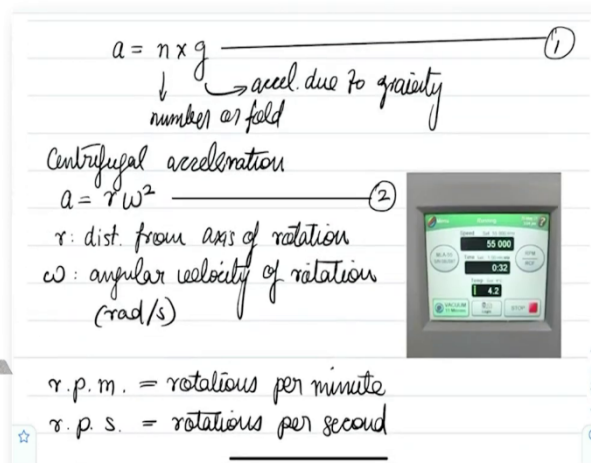 a = n x g ①
accel. due to gravity
number or fold
Centrifugal acceleration
a = rω² ②
r: dist. from axis of rotation
ω: angular velocity of rotation
(rad/s)
Running
Speed
55 000
0:32
4.2
VACUUM
STOP
r.p.m. = rotations per minute
r.p.s. = rotations per second